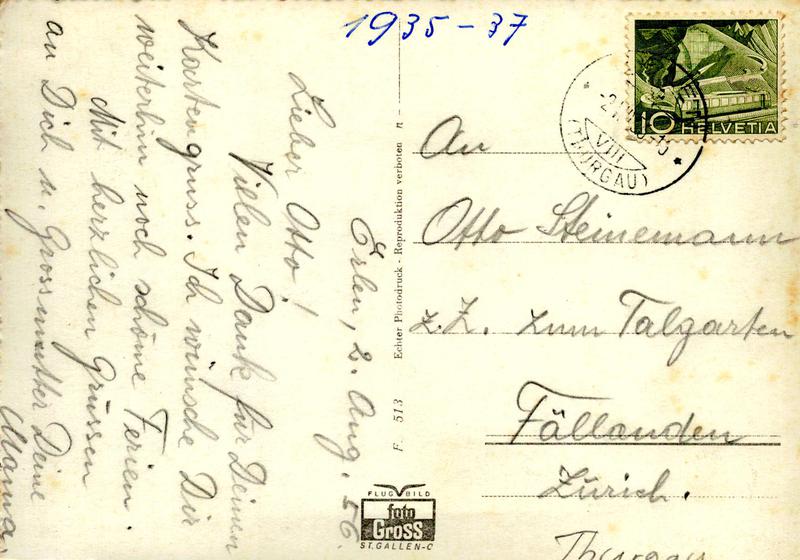 1935-37
Erlen, 2. Aug. 56.
Lieber Otto!
Vielen Dank für Deinen
Kartengruss. Ich wünsche Dir
weiterhin noch schöne Ferien.
Mit herzlichen Grüssen
an Dich u. Grossmutter Deine
Mama
F. 513 Echter Photodruck - Reproduktion verboten n -
FLUGBILD
foto
GROSS
ST.GALLEN-C
10 HELVETIA
VIII
(THURGAU)
An
Otto Steinemann
z.Z. zum Talgarten
Fällanden
Zürich.
Thurgau